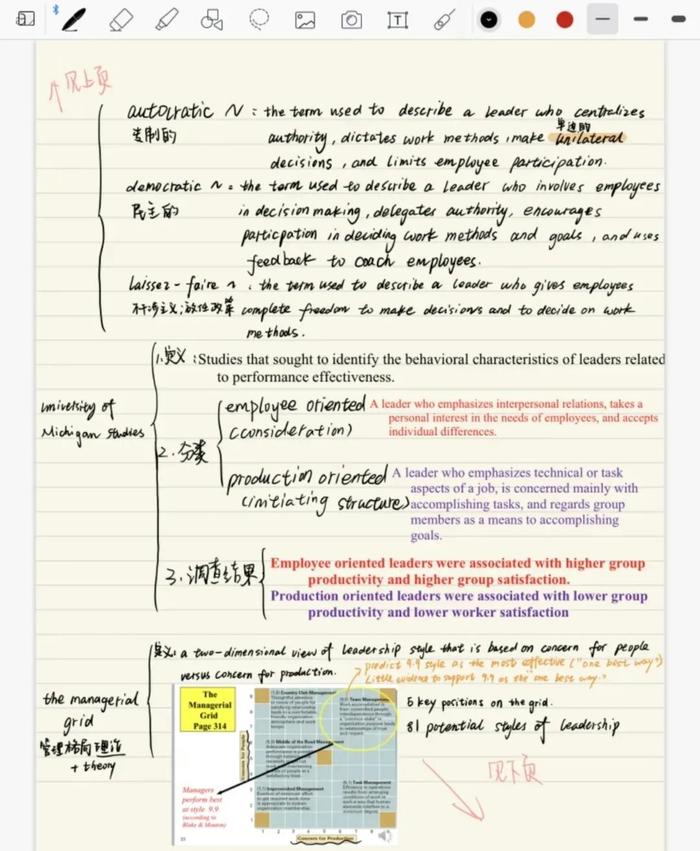 见上页
autocratic ~ : the term used to describe a leader who centralizes
专制的
单边的
authority, dictates work methods, make unilateral
decisions, and limits employee participation.
democratic ~ : the term used to describe a leader who involves employees
民主的
in decision making, delegates authority, encourages
particpation in deciding work methods and goals, and uses
feedback to coach employees.
laissez-faire ~ : the term used to describe a leader who gives employees
不干涉主义;放任政策
complete freedom to make decisions and to decide on work
methods.
university of
Michigan studies
1.定义:Studies that sought to identify the behavioral characteristics of leaders related
to performance effectiveness.
2.分类
employee oriented
(consideration)
A leader who emphasizes interpersonal relations, takes a
personal interest in the needs of employees, and accepts
individual differences.
production oriented
(initiating structure)
A leader who emphasizes technical or task
aspects of a job, is concerned mainly with
accomplishing tasks, and regards group
members as a means to accomplishing
goals.
3.调查结果
Employee oriented leaders were associated with higher group
productivity and higher group satisfaction.
Production oriented leaders were associated with lower group
productivity and lower worker satisfaction
the managerial
grid
管理格局理论
+ theory
定义: a two-dimensional view of leadership style that is based on concern for people
versus concern for production.
predict 9.9 style as the most effective ("one best way")
Little evidence to support 9.9 as the one best way.
The
Managerial
Grid
Page 314
Managers
perform best
at style 9.9
(according to
Blake & Mouton)
(1,9) Country Club Management
(9,9) Team Management
(5,5) Middle of the Road Management
(1,1) Impoverished Management
(9,1) Task Management
Concern for People
1 2 3 4 5 6 7 8
Concern for Production
5 key positions on the grid.
81 potential styles of leadership
见下页